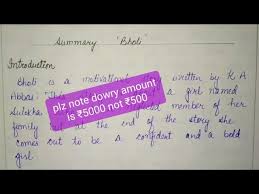 Summary "Bholi"
Introduction
Bholi is a motivational written by K A
Abbas. This a girl named
Sulekha member of her
family but at the end of the story she
comes out to be a confident and a bold
girl.
plz note dowry amount
is ₹5000 not ₹500